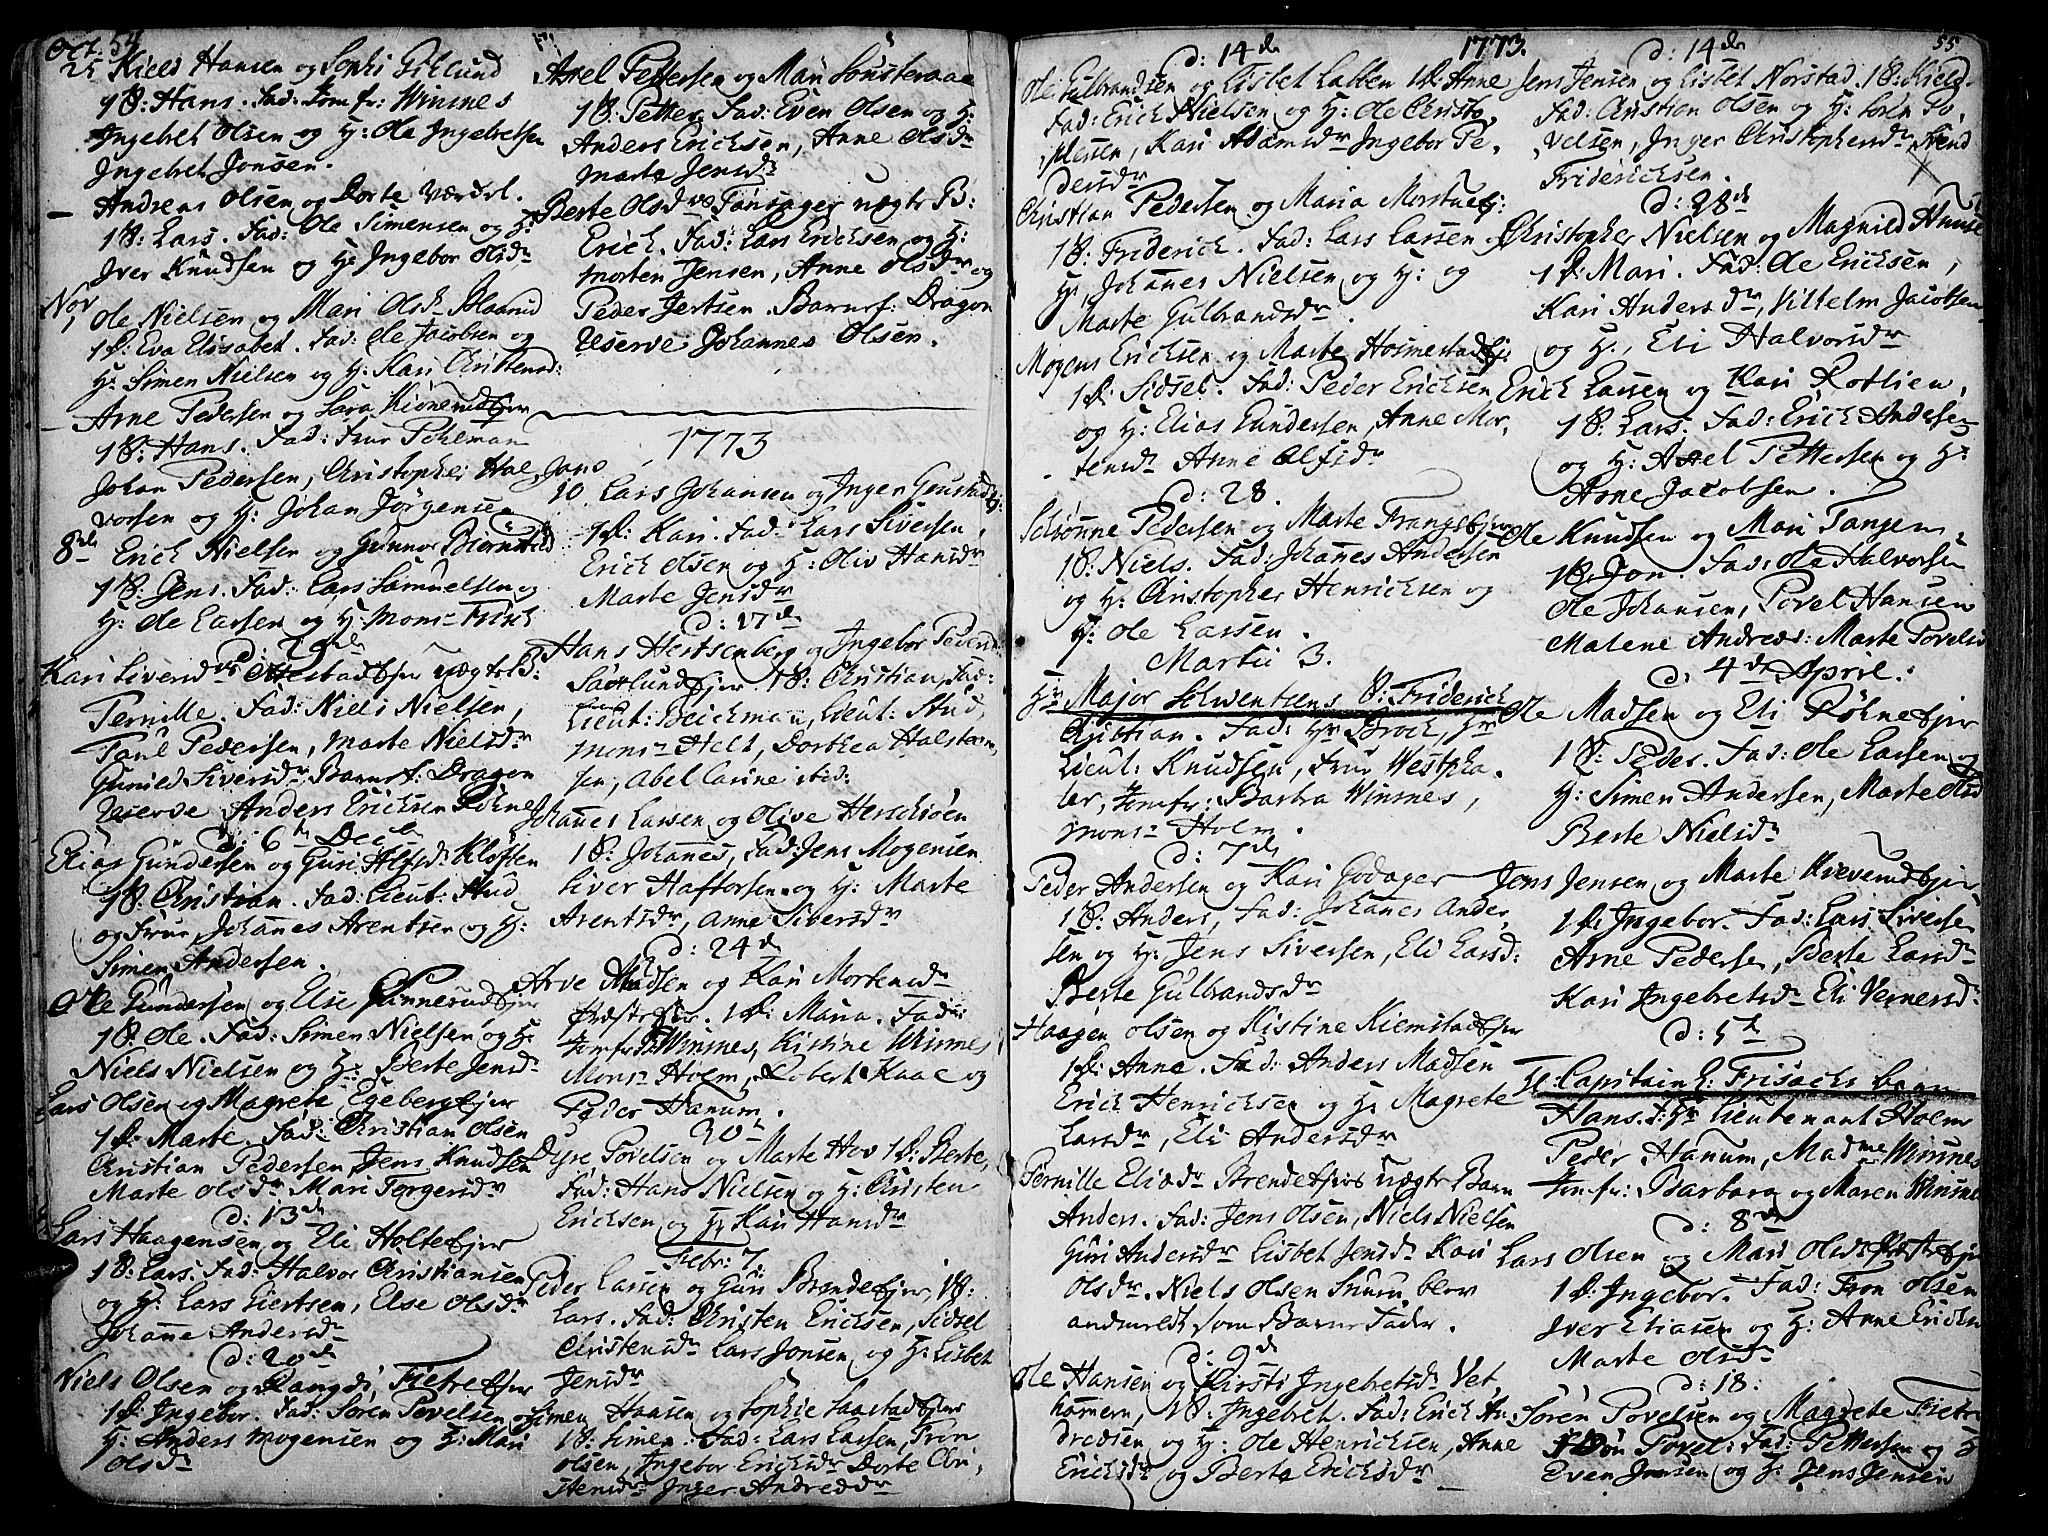 Oct. 54
25 Niels Hansen og Sophi Gihlund
1 B: Hans. Fad: Jomfr: Winsnes
Ingebret Olsen og H: Ole Ingebretsen
Ingebret Jonsen.
– Andreas Olsen og Dorte Værdel.
1 B: Lars. Fad: Ole Simensen og H:
Iver Knudsen og H: Ingebor Olsdr
Nov 1 Ole Nielsen og Mari Olsdr
1 P: Eva Elisabet. Fad: Ole Jacobsen og
H: Simen Nielsen og H: Kari Christensd:
– Arne Pedersen og Sara Kiønerudejer
1 B: Hans. Fad: Frue Pohlman
Johan Pedersen, Christopher Hal-
vorsen og H: Johan Jørgensen
8de Erich Nielsen og Gunnor Biørnerud
1 B: Jens. Fad: Lars Samuelsen og
H: Ole Larsen og H: Mons: Frisch
Kari Siversdr uægte P:
Pernille. Fad: Niels Nielsen,
Paul Pedersen, Marte Nielsdr
Gunild Siversdr Barnef: Dragon
Reserve Anders Ericksen Røhne
d: 6te Decbr
Elias Gundersen og Guri Alfsdr Kløften
1 B: Christian. Fad: Lieut: Stud
og Frue, Johannes Arentsen og H:
Simen Andersen.
Ole Gundersen og Else Finnerudejer
1 B. Ole. Fad: Simen Nielsen og H:
Niels Nielsen og H: Berte Jensdr
Lars Olsen og Magrete Egebergejer
1 P: Marte. Fad: Christian Olsen
Christian Pedersen Jens Knudsen
Marte Olsdr Mari Torgersdr
d: 13de
Lars Haagensen og Eli Holteejer
1 B: Lars. Fad: Halvor Christiansen
og H: Lars Giertsen, Else Olsdr
Johanne Andersdr
d: 20de
Niels Olsen og Rangdi Fietreejer
1 P: Ingebor. Fad: Søren Povelsen og
H: Anders Mogensen og H: Mari
Olsdr
Axel Pettersen og Mari Sønsteraae
1 B: Petter. Fad: Even Olsen og H:
Anders Ericksen, Anne Olsdr
Marte Jensdr
Berte Olsdr Fonsager uægte B:
Erich. Fad: Lars Ericksen og H:
Morten Jensen, Anne Olsdr og
Peder Jertsen. Barnef: Dragon
Reserve Johannes Olsen.
1773
Janr
10 Lars Johansen og Inger
1 P: Kari. Fad: Lars Siversen,
Erich Olsen og H: Oliv Hansdr
Marte Jensdr
d: 17de
Hans Hertsenberg og Ingebor Peders
Sætlundejer. 1 B: Christian, Fad:
Lieut: Beichman, Lieut: Stud,
Mons: Helt, Dorthea Halstens
sen, Abel Carine
Johannes Larsen og Olive Herschiøen
1 B: Johanes, Fad: Jens Mogensen
Siver Haftorsen og H: Marte
Arentsdr, Anne Siversdr
d: 24de
Arve Madsen og Kari Mortensdr
Præsteejer. 1 P: Maria. Fad:
Jomfr: B Winsnes, Kistine Winsnes
Mons: Holm, Robert Kaae og
Peder Hanum.
30te
Povelsen og Marte Hov 1 P: Berte,
Fad: Hans Nielsen og H: Christen
Ericksen og H: Kari Hansdr
Febr: 7.
Peder Larsen og Guri Brendeejer, 1 B:
Lars. Fad: Christen Ericksen, Sidsel
Christensdr Lars Jonsen og H: Lisbet
Jensdr
Simen Hansen og Sophie Saastadejer
1 B: Simen. Fad: Lars Larsen, Tron
Olsen, Ingebor Ericksdr Dorte Chri-
stensdr Inger Andreædr
1773.
d: 14de
Ole Gulbrandsen og Lisbet Labben 1 P: Anne
Fad: Erich Nielsen og H: Ole Christo-
phersen, Kari Adamsdr Ingebor Pe-
dersdr
Christian Pedersen og Maria Morstuej:
1 B: Friderich. Fad: Lars Larsen og
H:, Johanes Nielsen og H: og
Marte Gulbrandsdr.
Mogens Ericksen og Marte Hosmestadej:
1 P: Sidsel. Fad: Peder Ericksen
og H: Elias Gundersen, Anne Mor-
tensdr Anne Olfsdr
d: 28.
Pedersen og Marte Frangsejer
1 B: Niels. Fad: Johanes Andersen
og H: Christopher Henricksen og
H: Ole Larsen.
Martii 3.
Hr Major Schwentsens B: Friderich
Christian. Fad: Hr Broch, Hr
Lieut: Knudsen, Frue Westpha-
ler, Jomfr: Barbra Winsnes,
Mons: Holm.
d: 7de
Peder Andersen og Kari Godager
1 B: Anders, Fad: Johanes Ander-
sen og H: Jens Siversen, Eli Larsd:
Berte Gulbrandsdr
Haagen Olsen og Kistine Kiemstadejer
1 P: Anne. Fad: Anders Madsen
Erich Henricksen og H: Magrete
Larsdr, Eli Andersdr
Pernille Eliædr Brendeejers uægte Barn
Anders. Fad: Jens Olsen, Niels Nielsen
Guri Andersdr Lisbet Jensdr Kari
Olsdr. Niels Olsen blev
andmeldt som Barne Fader.
d: 9de
Ole Hansen og Kirsti Ingebretsdr Vet-
hammern, 1 B: Ingebret. Fad: Erich An-
dreæsen og H: Ole Henricksen, Anne
Ericksdr og Berte Ericksdr
55
d: 14de
Jens Jensen og Lisbet Norstad. 1 B: Kield
Fad: Christian Olsen og H: Søren Po-
velsen, Inger Christophersdr, Svend
Fridericksen.
d: 28de
Christopher Nielsen og Magnild
1 P: Mari. Fad: Ole Ericksen,
Kari Andersdr, Vilhelm Jacobsen
og H:, Eli Halvorsdr
Erich Larsen og Kari Rotlien,
1 B: Lars. Fad: Erich Andersen
og H: Axel Pettersen og H:
Arne Jacobsen.
Ole Knudsen og Mari Tangen,
1 B: Jon. Fad: Ole Halvorsen
Ole Johansen, Povel Hansen
Malene Andreæs: Marte Povelsd
d: 4de April.
Ole Madsen og Eli Røhneejer
1 B: Peder. Fad: Ole Larsen og
H: Simen Andersen, Marte Olsd
Berte Nielsdr
Jens Jensen og Marte Kreverudejer
1 P: Ingebor. Fad: Lars Siversen
Arne Pedersen, Berte Larsdr
Kari Ingebretsdr Eli Vernersdr
d: 5te
Capitain G: Frisachs barn
Hans. F: Hr Lieutenant Holm
Peder Hanum, Madme Winsnes
Jomfr: Barbara og Maren Winsnes
d: 8de
Lars Olsen og Mari Olsdr
1 P: Ingebor. Fad: Tron Olsen
Iver Eliasen og H: Anne Ericksd
Marte Olsdr
d: 18:
Søren Povelsen og Magrete Fietre
Povel: Fad: Pettersen og H
Even Jonsen og H: Jens Jensen